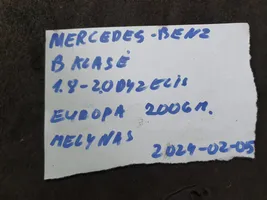 MERCEDES-BENZ
B KLASĖ
1.8-2.0 DYZELIS
EUROPA 2006 M.
MELYNAS
2024-02-05